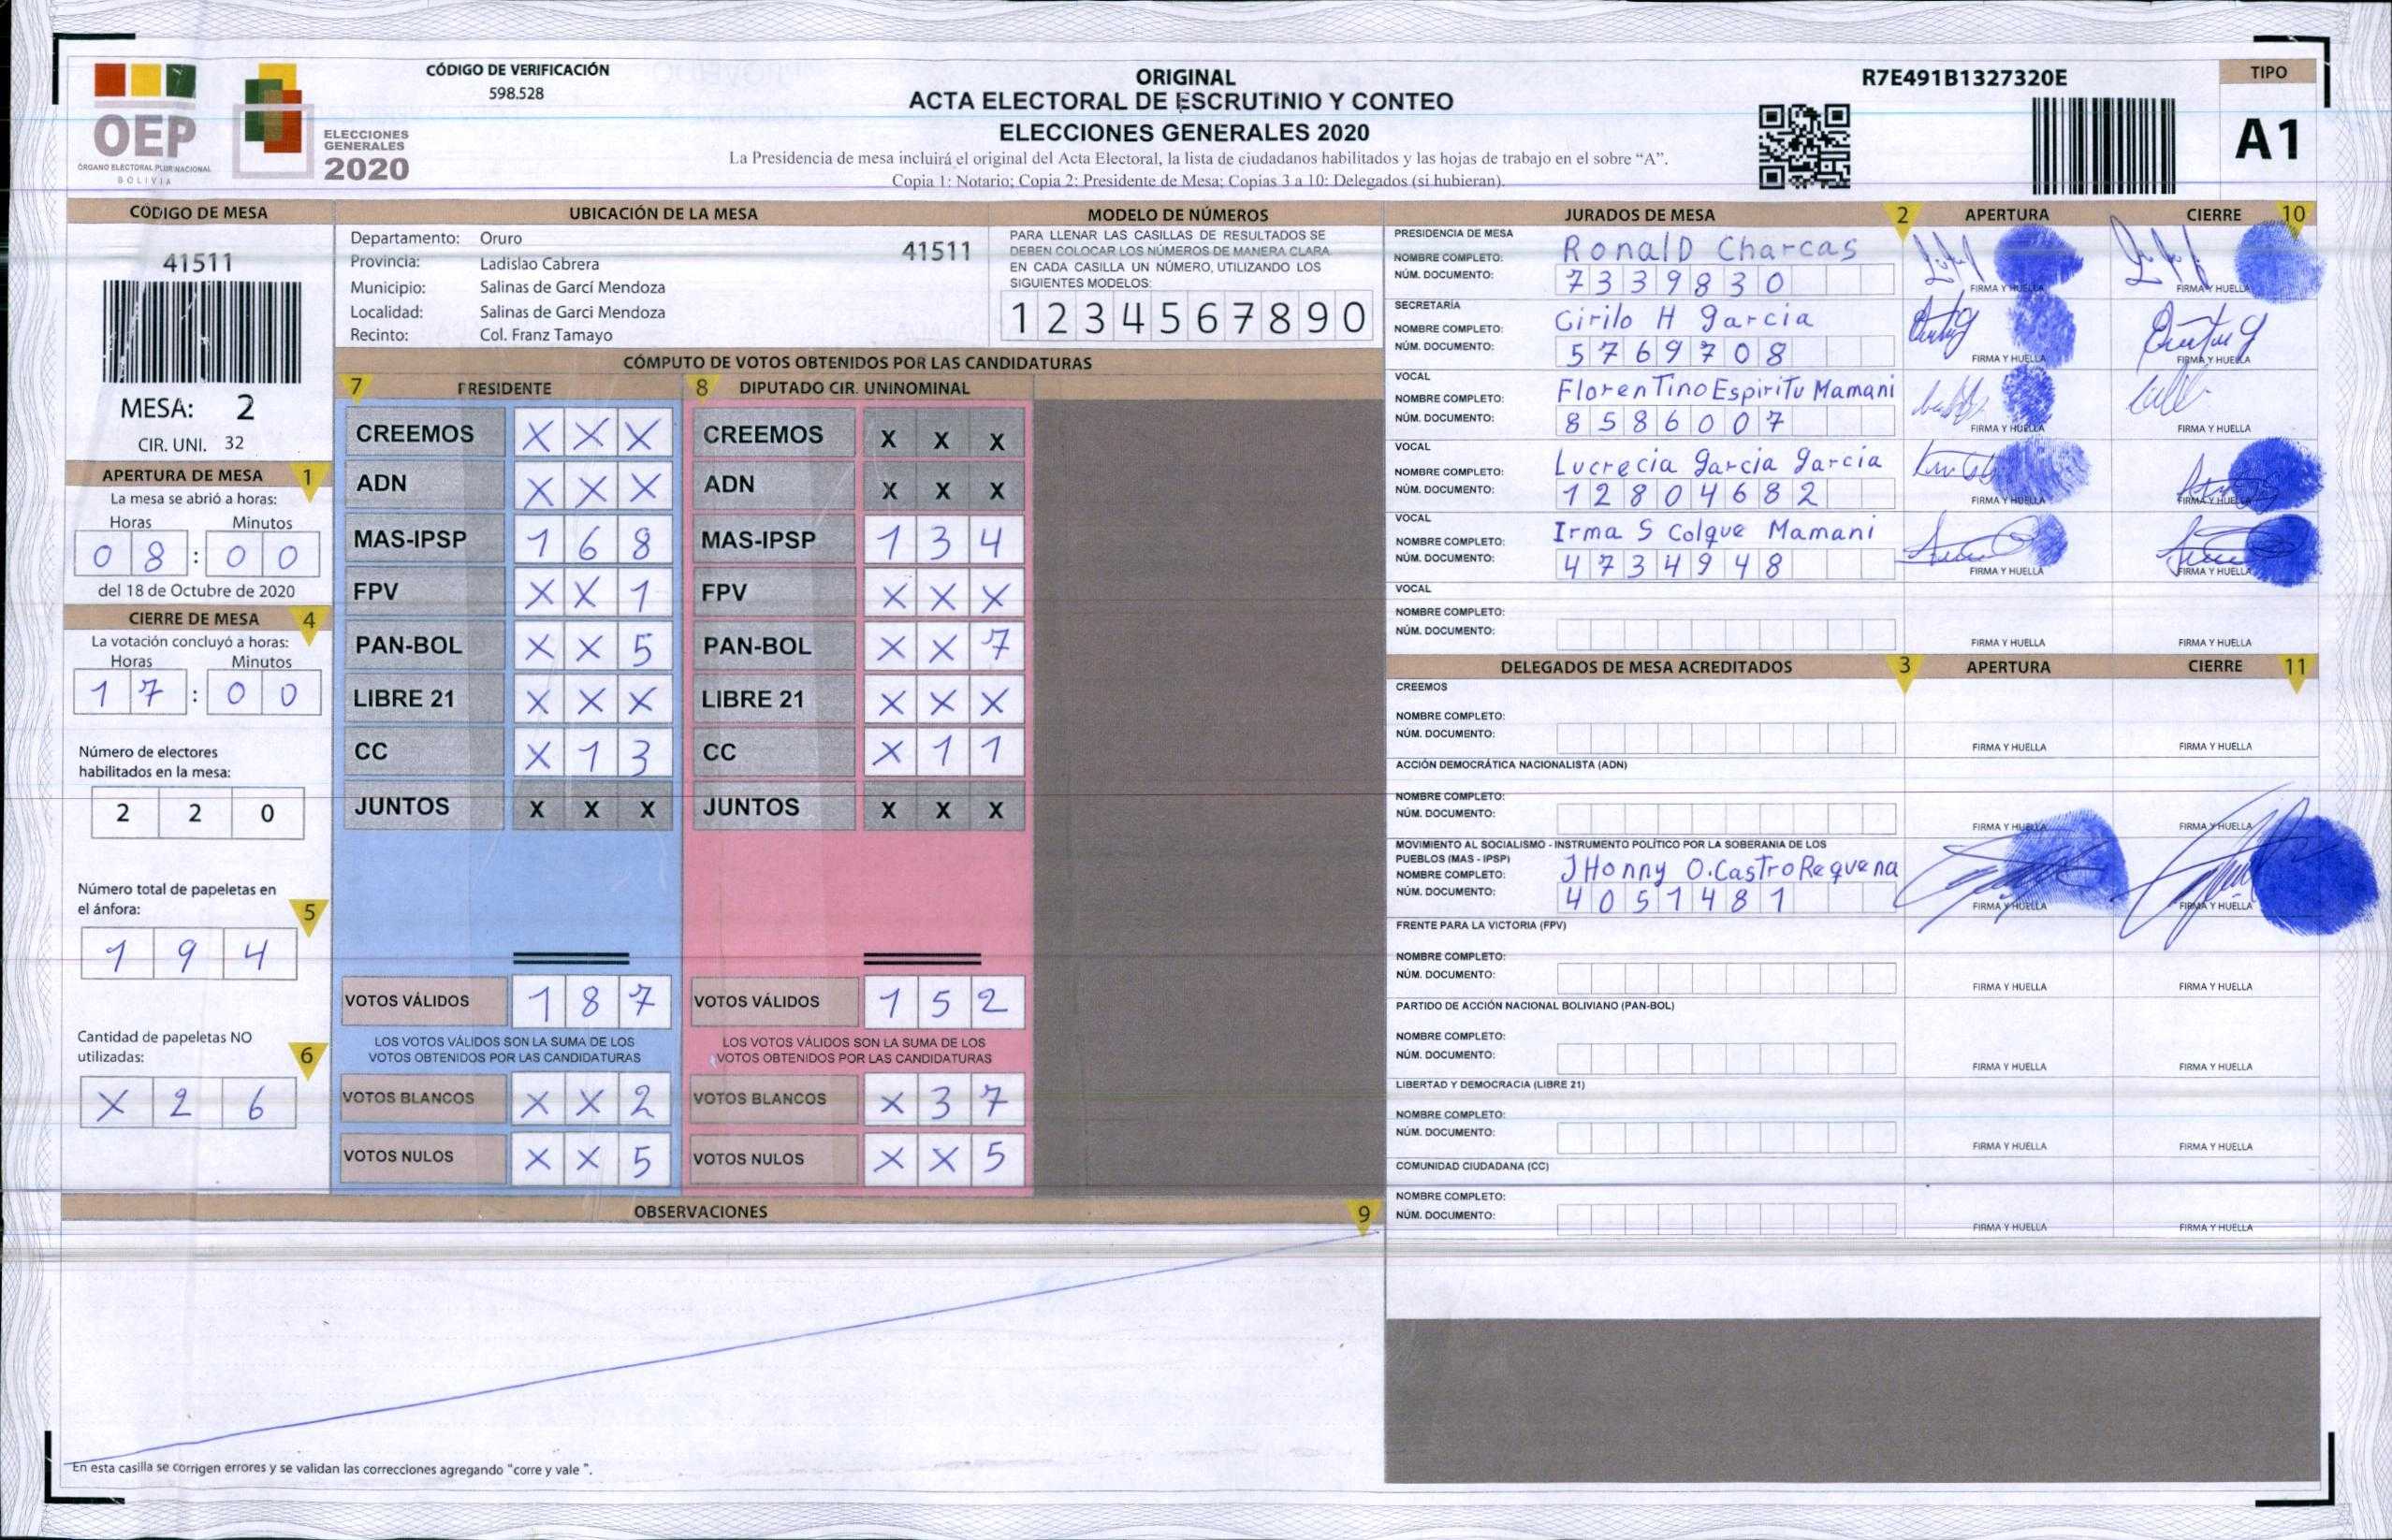 OEP
ÓRGANO ELECTORAL PLURINACIONAL
BOLIVIA
ELECCIONES
GENERALES
2020
CÓDIGO DE VERIFICACIÓN
598.528
ORIGINAL
ACTA ELECTORAL DE ESCRUTINIO Y CONTEO
ELECCIONES GENERALES 2020
La Presidencia de mesa incluirá el original del Acta Electoral, la lista de ciudadanos habilitados y las hojas de trabajo en el sobre “A”.
Copia 1: Notario; Copia 2: Presidente de Mesa; Copias 3 a 10: Delegados (si hubieran).
R7E491B1327320E
TIPO
A1
CÓDIGO DE MESA
41511
MESA: 2
CIR. UNI. 32
APERTURA DE MESA 1
La mesa se abrió a horas:
Horas Minutos
0 8 : 0 0
del 18 de Octubre de 2020
CIERRE DE MESA 4
La votación concluyó a horas:
Horas Minutos
1 7 : 0 0
Número de electores
habilitados en la mesa:
2 2 0
Número total de papeletas en
el ánfora: 5
1 9 4
Cantidad de papeletas NO
utilizadas: 6
X 2 6
UBICACIÓN DE LA MESA
Departamento: Oruro 41511
Provincia: Ladislao Cabrera
Municipio: Salinas de Garcí Mendoza
Localidad: Salinas de Garci Mendoza
Recinto: Col. Franz Tamayo
MODELO DE NÚMEROS
PARA LLENAR LAS CASILLAS DE RESULTADOS SE
DEBEN COLOCAR LOS NÚMEROS DE MANERA CLARA
EN CADA CASILLA UN NÚMERO, UTILIZANDO LOS
SIGUIENTES MODELOS:
1 2 3 4 5 6 7 8 9 0
CÓMPUTO DE VOTOS OBTENIDOS POR LAS CANDIDATURAS
7 PRESIDENTE 8 DIPUTADO CIR. UNINOMINAL
CREEMOS X X X CREEMOS X X X
ADN X X X ADN X X X
MAS-IPSP 1 6 8 MAS-IPSP 1 3 4
FPV X X 1 FPV X X X
PAN-BOL X X 5 PAN-BOL X X 7
LIBRE 21 X X X LIBRE 21 X X X
CC X 1 3 CC X 1 1
JUNTOS X X X JUNTOS X X X
VOTOS VÁLIDOS 1 8 7 VOTOS VÁLIDOS 1 5 2
LOS VOTOS VÁLIDOS SON LA SUMA DE LOS LOS VOTOS VÁLIDOS SON LA SUMA DE LOS
VOTOS OBTENIDOS POR LAS CANDIDATURAS VOTOS OBTENIDOS POR LAS CANDIDATURAS
VOTOS BLANCOS X X 2 VOTOS BLANCOS X 3 7
VOTOS NULOS X X 5 VOTOS NULOS X X 5
OBSERVACIONES 9
En esta casilla se corrigen errores y se validan las correcciones agregando “corre y vale ”.
JURADOS DE MESA 2 APERTURA CIERRE 10
PRESIDENCIA DE MESA
NOMBRE COMPLETO: Ronald Charcas
NÚM. DOCUMENTO: 7339830 FIRMA Y HUELLA FIRMA Y HUELLA
SECRETARÍA
NOMBRE COMPLETO: Cirilo H garcia
NÚM. DOCUMENTO: 5769708 FIRMA Y HUELLA FIRMA Y HUELLA
VOCAL
NOMBRE COMPLETO: Florentino Espiritu Mamani
NÚM. DOCUMENTO: 8586007 FIRMA Y HUELLA FIRMA Y HUELLA
VOCAL
NOMBRE COMPLETO: Lucrecia garcia garcia
NÚM. DOCUMENTO: 12804682 FIRMA Y HUELLA FIRMA Y HUELLA
VOCAL
NOMBRE COMPLETO: Irma S Colque Mamani
NÚM. DOCUMENTO: 4734948 FIRMA Y HUELLA FIRMA Y HUELLA
VOCAL
NOMBRE COMPLETO:
NÚM. DOCUMENTO: FIRMA Y HUELLA FIRMA Y HUELLA
DELEGADOS DE MESA ACREDITADOS 3 APERTURA CIERRE 11
CREEMOS
NOMBRE COMPLETO:
NÚM. DOCUMENTO: FIRMA Y HUELLA FIRMA Y HUELLA
ACCIÓN DEMOCRÁTICA NACIONALISTA (ADN)
NOMBRE COMPLETO:
NÚM. DOCUMENTO: FIRMA Y HUELLA FIRMA Y HUELLA
MOVIMIENTO AL SOCIALISMO - INSTRUMENTO POLÍTICO POR LA SOBERANIA DE LOS
PUEBLOS (MAS - IPSP)
NOMBRE COMPLETO: JHonny O. Castro Requena
NÚM. DOCUMENTO: 4051481 FIRMA Y HUELLA FIRMA Y HUELLA
FRENTE PARA LA VICTORIA (FPV)
NOMBRE COMPLETO:
NÚM. DOCUMENTO: FIRMA Y HUELLA FIRMA Y HUELLA
PARTIDO DE ACCIÓN NACIONAL BOLIVIANO (PAN-BOL)
NOMBRE COMPLETO:
NÚM. DOCUMENTO: FIRMA Y HUELLA FIRMA Y HUELLA
LIBERTAD Y DEMOCRACIA (LIBRE 21)
NOMBRE COMPLETO:
NÚM. DOCUMENTO: FIRMA Y HUELLA FIRMA Y HUELLA
COMUNIDAD CIUDADANA (CC)
NOMBRE COMPLETO:
NÚM. DOCUMENTO: FIRMA Y HUELLA FIRMA Y HUELLA